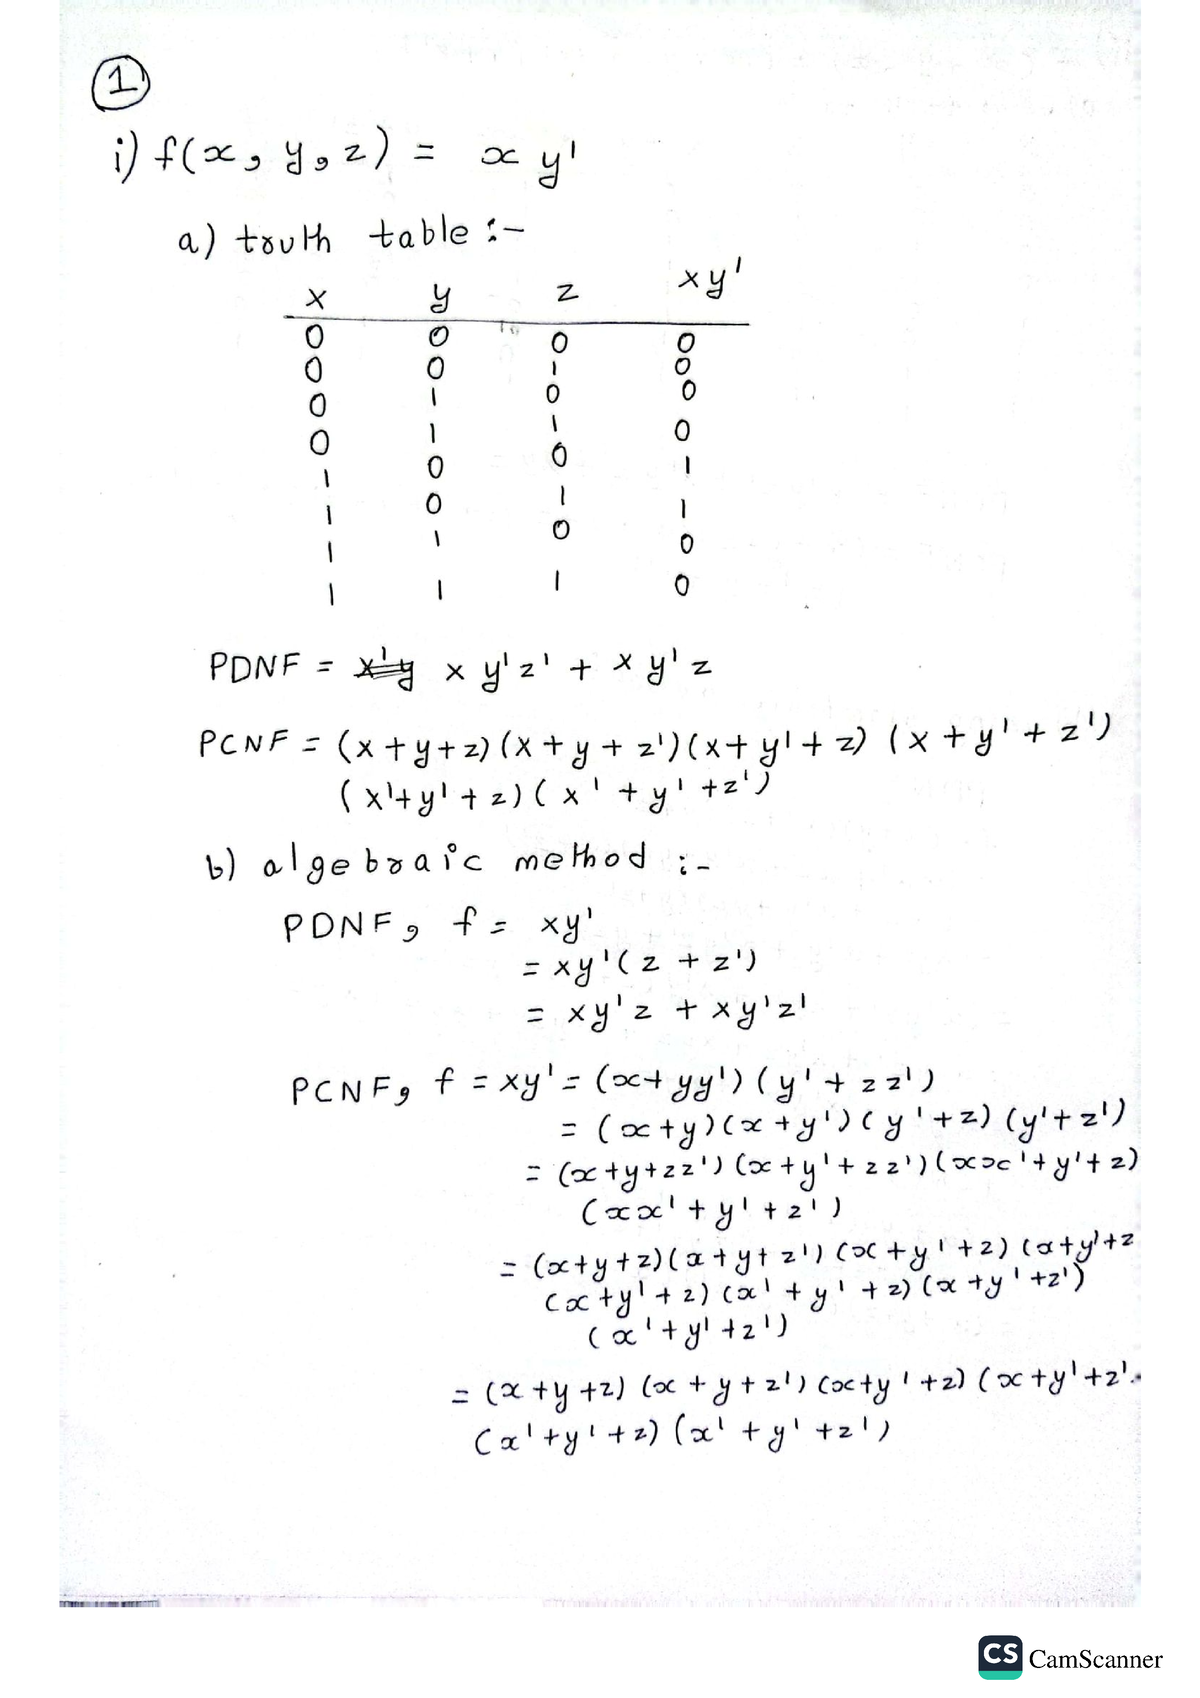 1
i) f(x, y, z) = x y'
a) truth table :-
x y z xy'
0 0 0 0
0 0 1 0
0 1 0 0
0 1 1 0
1 0 0 1
1 0 1 1
1 1 0 0
1 1 1 0
PDNF = x'y x y' z' + x y' z
PCNF = (x + y + z) (x + y + z') (x + y' + z) (x + y' + z')
(x' + y' + z) (x' + y' + z')
b) algebraic method :-
PDNF, f = xy'
= xy' (z + z')
= xy'z + xy'z'
PCNF, f = xy' = (x + yy') (y' + zz')
= (x + y) (x + y') (y' + z) (y' + z')
= (x + y + zz') (x + y' + zz') (xx' + y' + z)
(xx' + y' + z')
= (x + y + z) (x + y + z') (x + y' + z) (x + y' + z
(x + y' + z) (x' + y' + z) (x + y' + z')
(x' + y' + z')
= (x + y + z) (x + y + z') (x + y' + z) (x + y' + z'
(x' + y' + z) (x' + y' + z')
CS CamScanner